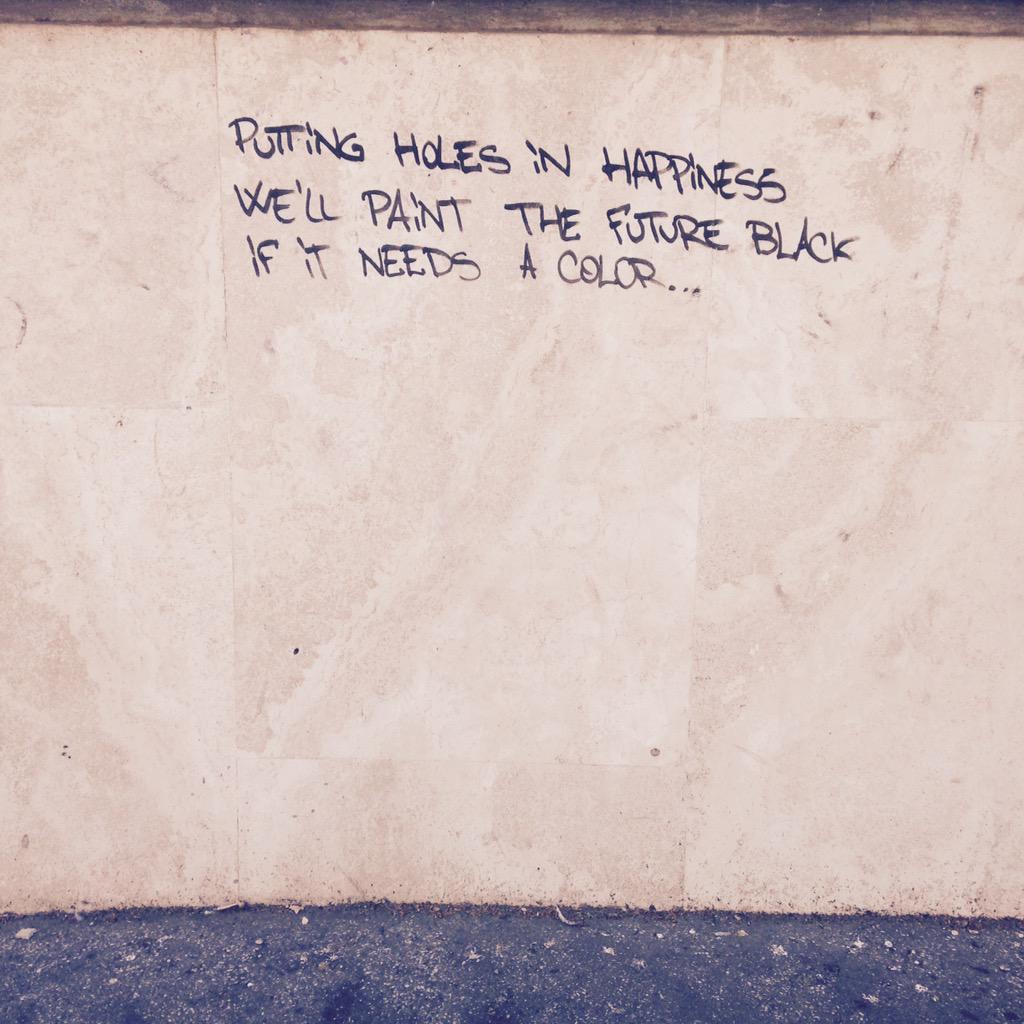 PUTTiNG HOLES iN HAPPiNESS
WE'LL PAiNT THE FUTURE BLACK
iF iT NEEDS A COLOR...